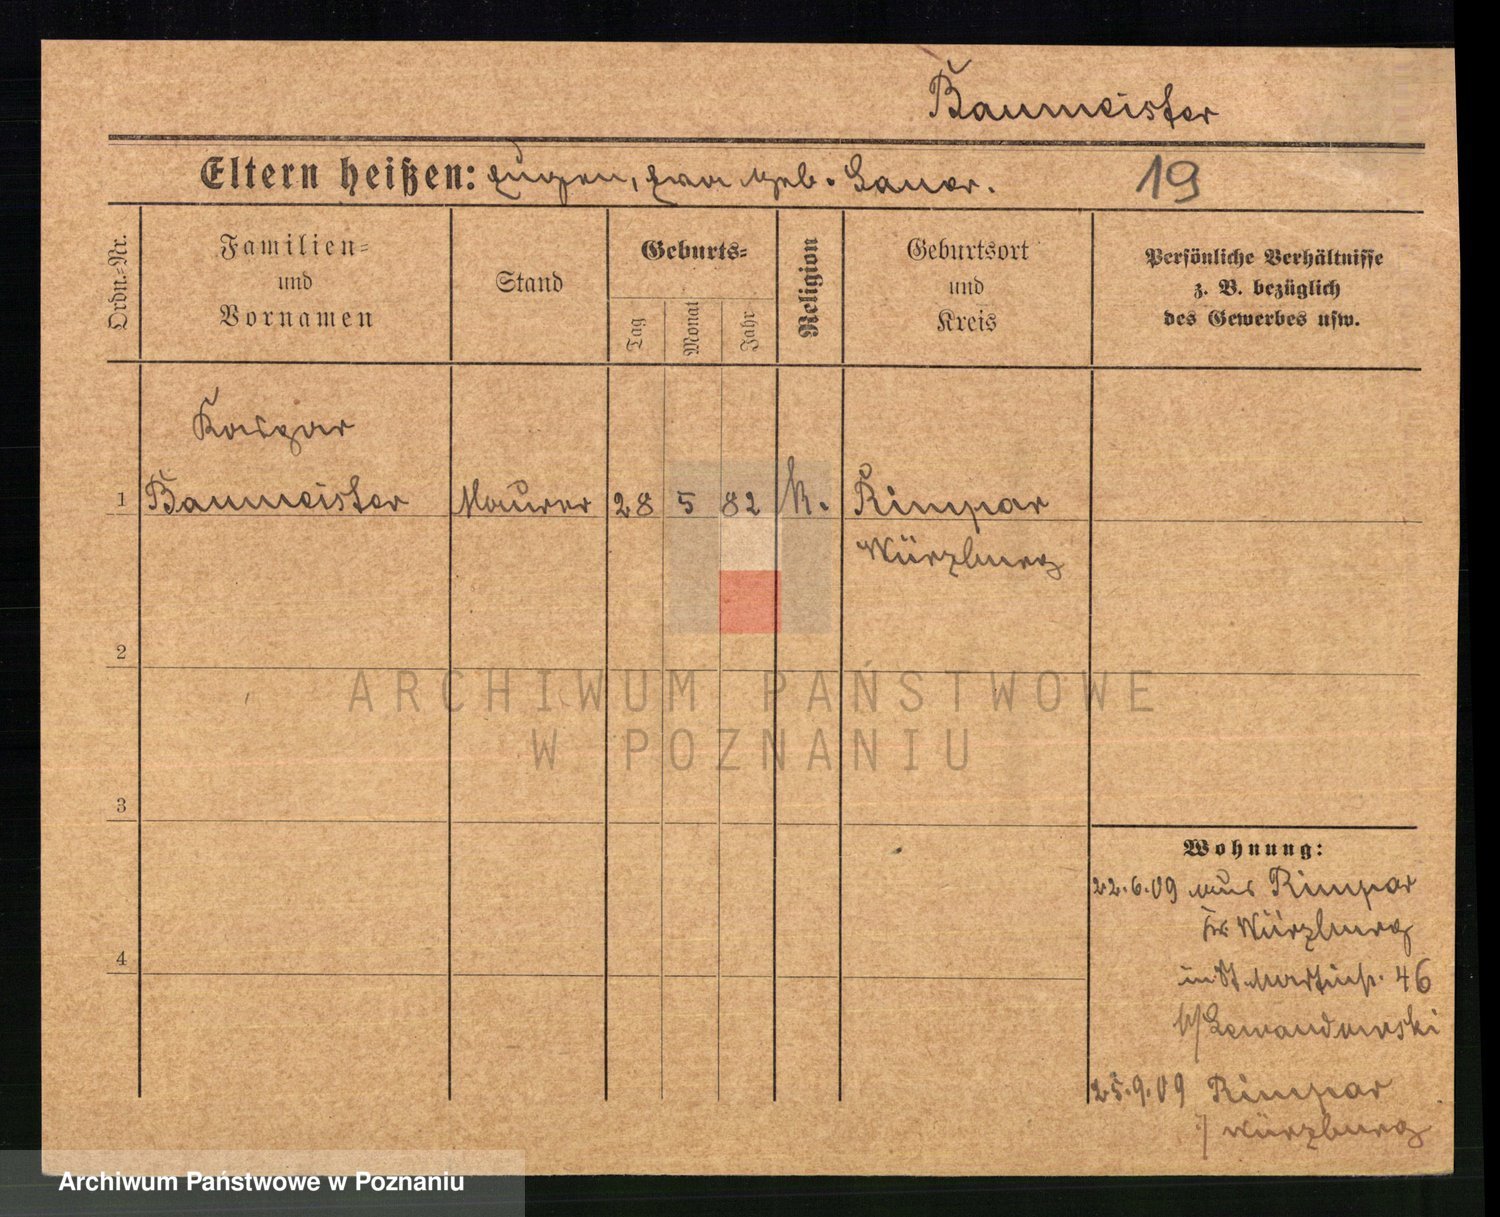 Baumeister
Eltern heißen: Eugen, Eva geb. Sauer.
19
Ordn.-Nr.
Familien-
und
Vornamen
Stand
Geburts-
Tag
Monat
Jahr
Religion
Geburtsort
und
Kreis
Persönliche Verhältnisse
z. B. bezüglich
des Gewerbes usw.
Kaspar
1 Baumeister Maurer 28 5 82 k. Rimpar
Würzburg
2
ARCHIWUM PAŃSTWOWE
W POZNANIU
3
Wohnung:
22.6.09 aus Rimpar
Kr. Würzburg
in St Martinstr. 46
b/Lewandowski
4
25.9.09 Rimpar
Würzburg
Archiwum Państwowe w Poznaniu